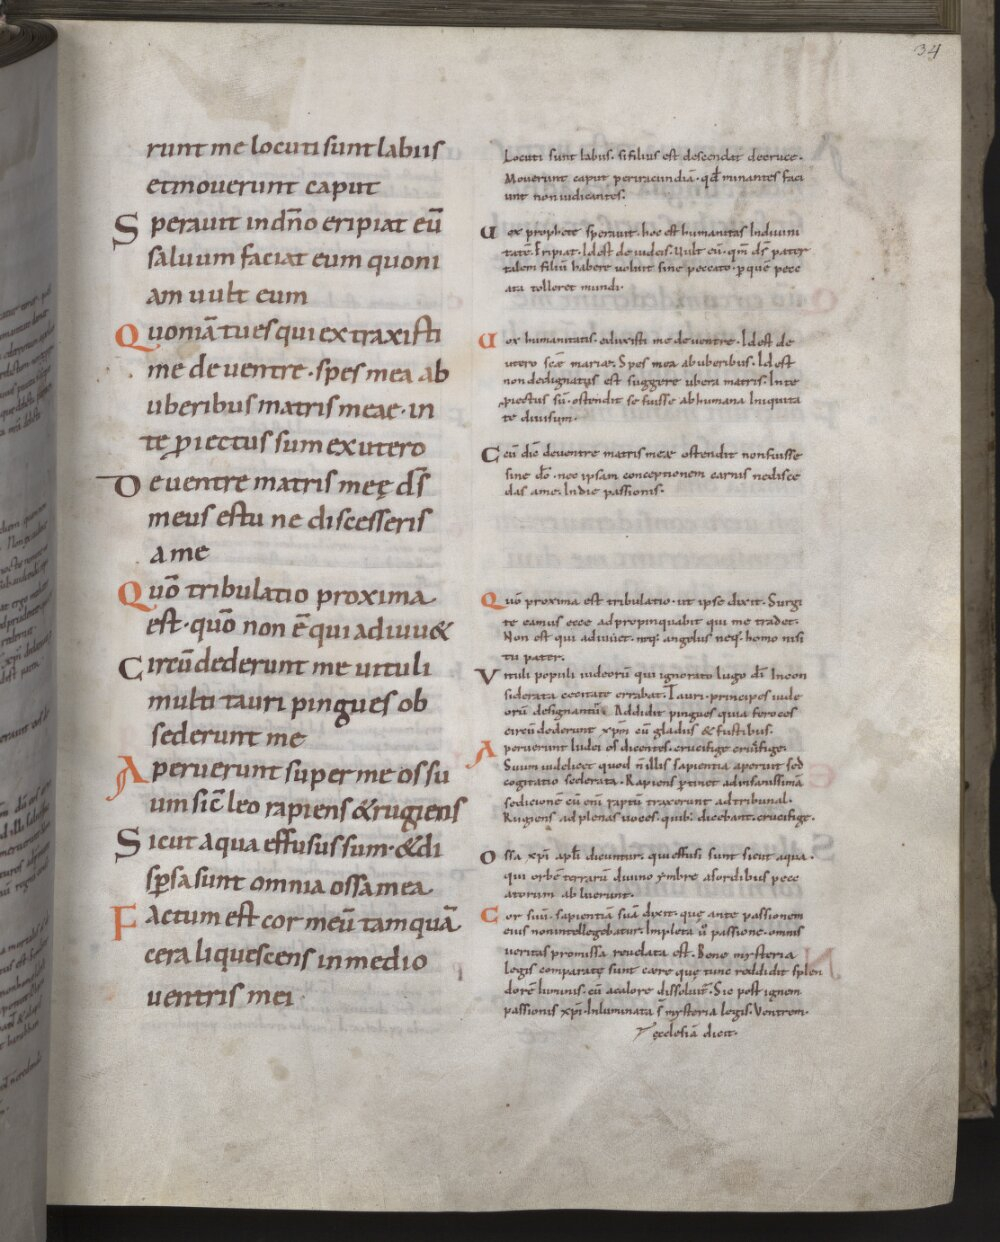 34
runt me locuti sunt labiis
et mouerunt caput
Sperauit in dño eripiat eū
saluum faciat eum quoni
am uult eum
Quoniā tu es qui extraxisti
me de uentre · spes mea ab
uberibus matris meae · in
te proiectus sum ex utero
De uentre matris meę d̄s
meus es tu ne discesseris
a me
Quō tribulatio proxima
est · quō non ē qui adiuu&
Circūdederunt me uituli
multi tauri pingues ob
sederunt me
Aperuerunt super me os su
um sic̄ leo rapiens & rugiens
Sicut aqua effusus sum · & di
sp̄sa sunt omnia ossa mea
Factum est cor meū tamquā
cera liquescens in medio
uentris mei
Locuti sunt labiis. si filius est descendat de cruce.
Mouerunt caput per iracundiā. qd̄ minantes faci
unt non iudicantes.
Uox prophete sperauit. hoc est humanitas In diuini
tatē. Eripiat. Id est de iudeis. Uult eū. qm̄ d̄s pater
talem filiū habere uoluit sine peccato. p quē pecc
ata tolleret mundi.
Uox humanitatis. eduxisti me de uentre. Id est de
utero scæ mariæ. Spes mea ab uberibus. Id est
non dedignatus est suggere ubera matris. In te
piectus sū. ostendit se fuisse ab humana Iniquita
te diuisum.
Cū dic̄ de uentre matris meæ ostendit non fuisse
sine dō. nec ipsam conceptionem carnis ne disce
das a me. In die passionis.
Quō proxima est tribulatio. ut ipse dixit. Surgi
te eamus ecce adpropinquabit qui me tradet.
Non est qui adiuuet. neq; angelus neq; homo nisi
tu pater.
Vituli populi iudeorū qui ignorato Iugo dī Incon
siderata cecitate errabat. Tauri. principes iude
orū designantur. Addidit pingues quia feroces
circūdederunt xpm̄ cū gladiis & fustibus.
Aperuerunt Iudei os dicentes. crucifige crucifige.
Suum uidelicet quod n̄ illis sapientia aperuit sed
cogitatio scelerata. Rapiens ptinet ad insanissimā
sedicionē cū eni raptū traxerunt ad tribunal.
Rugiens ad plenas uoces. quib; dicebant. crucifige.
Ossa xpī apłi dicuntur. qui effusi sunt sicut aqua.
qui orbē terrarū diuino ymbre a sordibus pecc
atorum abluerunt.
Cor suū. sapientiā suā dixit. quę ante passionem
eius non intellegebatur. Impleta ū passione. omnis
ueritas promissa reuelata est. Bene mysteria
legis comparatę sunt cære quę tunc reddidit splen
dorē luminis. cū a calore dissoluit. Sic post ignem
passionis xpī. Inluminata s̄ mysteria legis. Ventrem.
ecclesiā dicit.